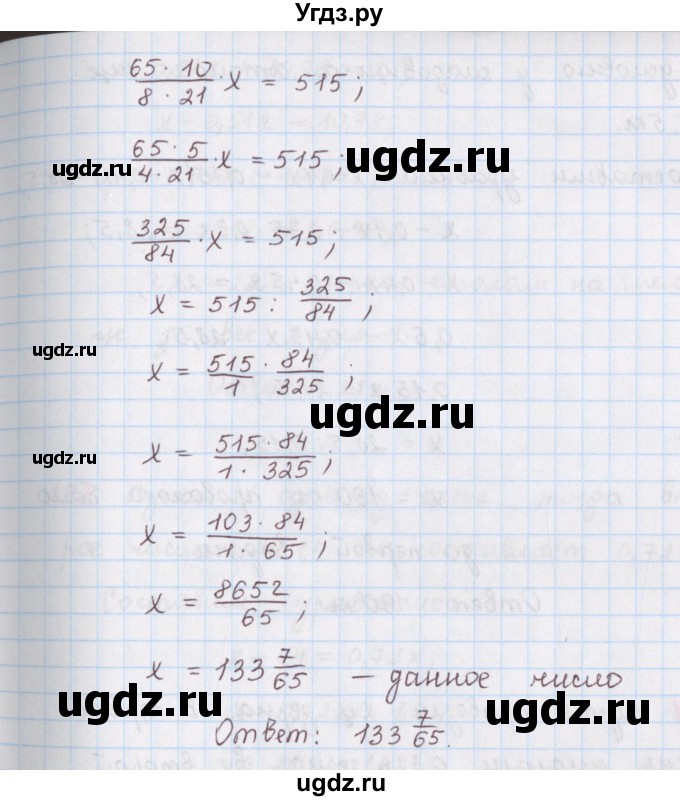 Угдз.ру
65·10/8·21 · x = 515;
65·5/4·21 · x = 515;
ugdz.ru ugdz.ru
325/84 · x = 515;
x = 515 : 325/84;
x = 515/1 · 84/325;
ugdz.ru
ugdz.ru
x = 515·84/1·325;
ugdz.ru
x = 103·84/1·65;
x = 8652/65;
ugdz.ru
x = 133 7/65 – данное число
ugdz.ru ugdz.ru
Ответ: 133 7/65.
ugdz.ru